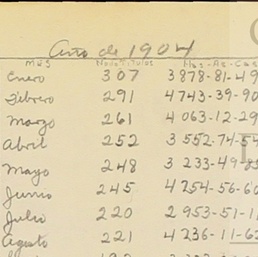 Año de 1904
MES No de Titulos Has-As-Cas
Enero 307 3878-81-49
Febrero 291 4743-39-90
Marzo 261 4063-12-29
Abril 252 3552-74-54
Mayo 248 3233-49-
Junio 245 4254-56-6
Julio 220 2953-51-1
Agosto 221 4236-11-6